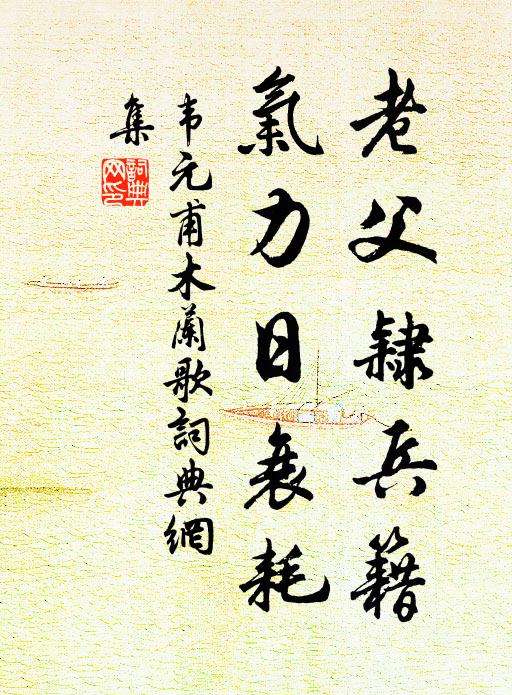 老父隸兵籍
氣力日衰耗
韦元甫木蘭歌詞典網
集
詞典
网印